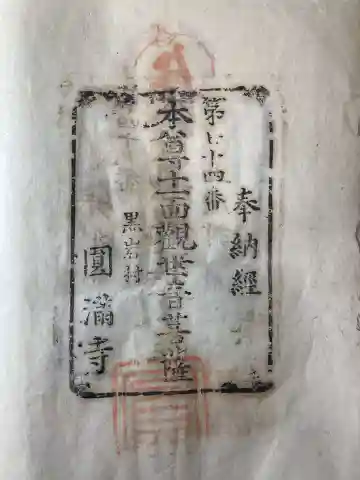 奉納經
第七十四番
本尊十一面觀世音菩薩
黒岩村
圓満寺